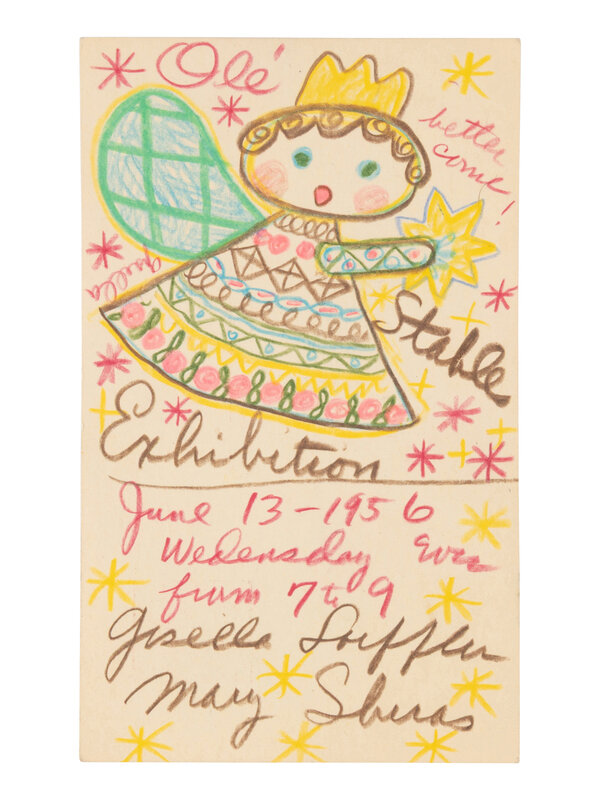 Olé
better
come!
gisella
Stable
Exhibition
June 13-1956
Wedensday Eve
from 7 to 9
Gisella Loeffler
Mary